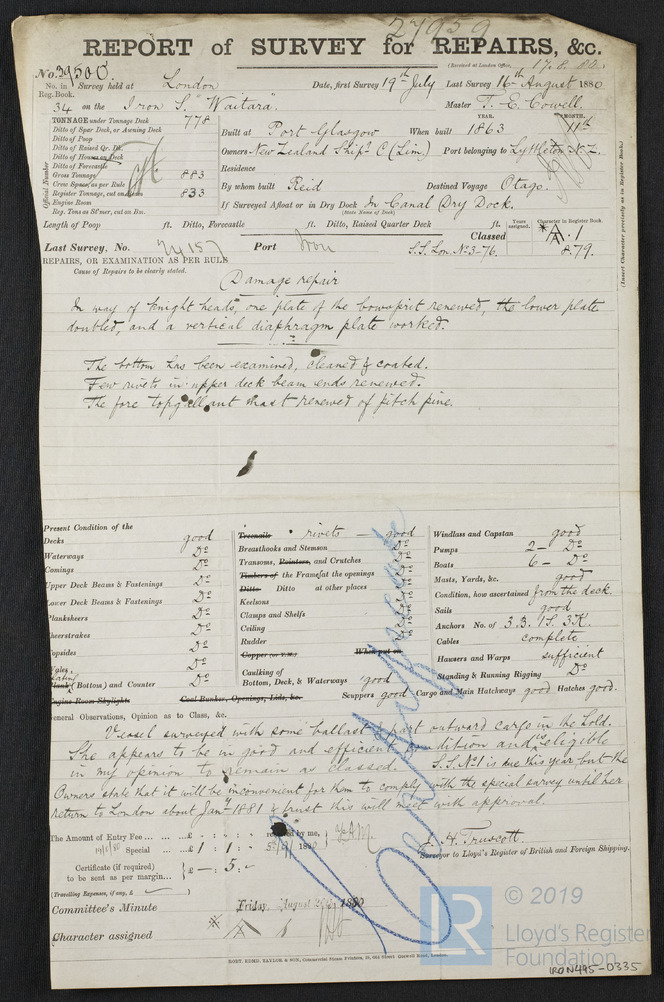 27959
REPORT of SURVEY for REPAIRS, &c.
(Received at London Office, 17.8.80.)
No. 39500.
No. in Reg. Book. Survey held at London Date, first Survey 19th July Last Survey 16th August 1880
34 on the Iron S. "Waitara." Master T. E. Cowell.
TONNAGE under Tonnage Deck 778
Ditto of Spar Deck, or Awning Deck
Ditto of Poop
Ditto of Raised Qr. Dk.
Ditto of Houses on Deck
Ditto of Forecastle
Gross Tonnage 883
Crew Space, as per Rule
Register Tonnage, cut on Beam 833
Engine Room
Reg. Tons as St'mer, cut on Bm.
Official Number
Built at Port Glasgow When built YEAR. 1863 MONTH. 11th
Owners New Zealand Ship'g Co (Lim.) Port belonging to Lyttleton N.Z.
Residence
By whom built Reid Destined Voyage Otago.
If Surveyed Afloat or in Dry Dock In Canal Dry Dock.
(State Name of Dock)
(Insert Character precisely as in Register Book.)
Length of Poop ft. Ditto, Forecastle ft. Ditto, Raised Quarter Deck ft.
Years assigned. Character in Register Book.
Classed A. 1
S.S. Lon. No 3-76. 8.79.
Last Survey, No. 24157 Port Iron
REPAIRS, OR EXAMINATION AS PER RULE
Cause of Repairs to be clearly stated.
Damage repair
In way of knight heads, one plate of the bowsprit renewed, the lower plate
doubled, and a vertical diaphragm plate worked.
The bottom has been examined, cleaned & coated.
Few rivets in upper deck beam ends renewed.
The fore topgallant mast renewed of pitch pine.
Present Condition of the
Decks good
Waterways Do
Comings Do
Upper Deck Beams & Fastenings Do
Lower Deck Beams & Fastenings Do
Planksheers Do
Sheerstrakes Do
Topsides Do
Wales Do
Plating
Plank (Bottom) and Counter Do
Engine Room Skylights Coal Bunker, Openings, Lids, &c.
Treenails rivets good
Breasthooks and Stemson Do
Transoms, Pointers, and Crutches Do
Timbers of the Frame at the openings
Ditto Ditto at other places
Keelsons
Clamps and Shelfs
Ceiling
Rudder
Copper (or Y.M.) When put on
Caulking of
Bottom, Deck, & Waterways good
Scuppers good Cargo and Main Hatchways good Hatches good.
Windlass and Capstan good
Pumps 2 - Do
Boats 6 - Do
Masts, Yards, &c. good
Condition, how ascertained from the deck.
Sails good
Anchors No. of 3.B. 1S. 3K.
Cables complete
Hawsers and Warps sufficient
Standing & Running Rigging Do
General Observations, Opinion as to Class, &c.
Vessel surveyed with some ballast & part outward cargo in the hold.
She appears to be in good and efficient condition and is eligible
in my opinion to remain as classed. S.S. No 1 is due this year but the
Owners state that it will be inconvenient for them to comply with the special survey until her
return to London about Jany 1881 & trust this will meet with approval.
The Amount of Entry Fee ... £ - : - : - received by me,
Special ... £ 1 : 1 : - 1880
Certificate (if required) £ - : 5 : -
to be sent as per margin...
(Travelling Expenses, if any, £ )
J. H. Truscott.
Surveyor to Lloyd's Register of British and Foreign Shipping.
Committee's Minute Friday, August 1880
Character assigned A 1
ROBT. EDMD. TAYLOR & SON, Commercial Steam Printers, 19, Old Street, Goswell Road, London.
© 2019
LR
Lloyd's Register
Foundation
IRON495-0335